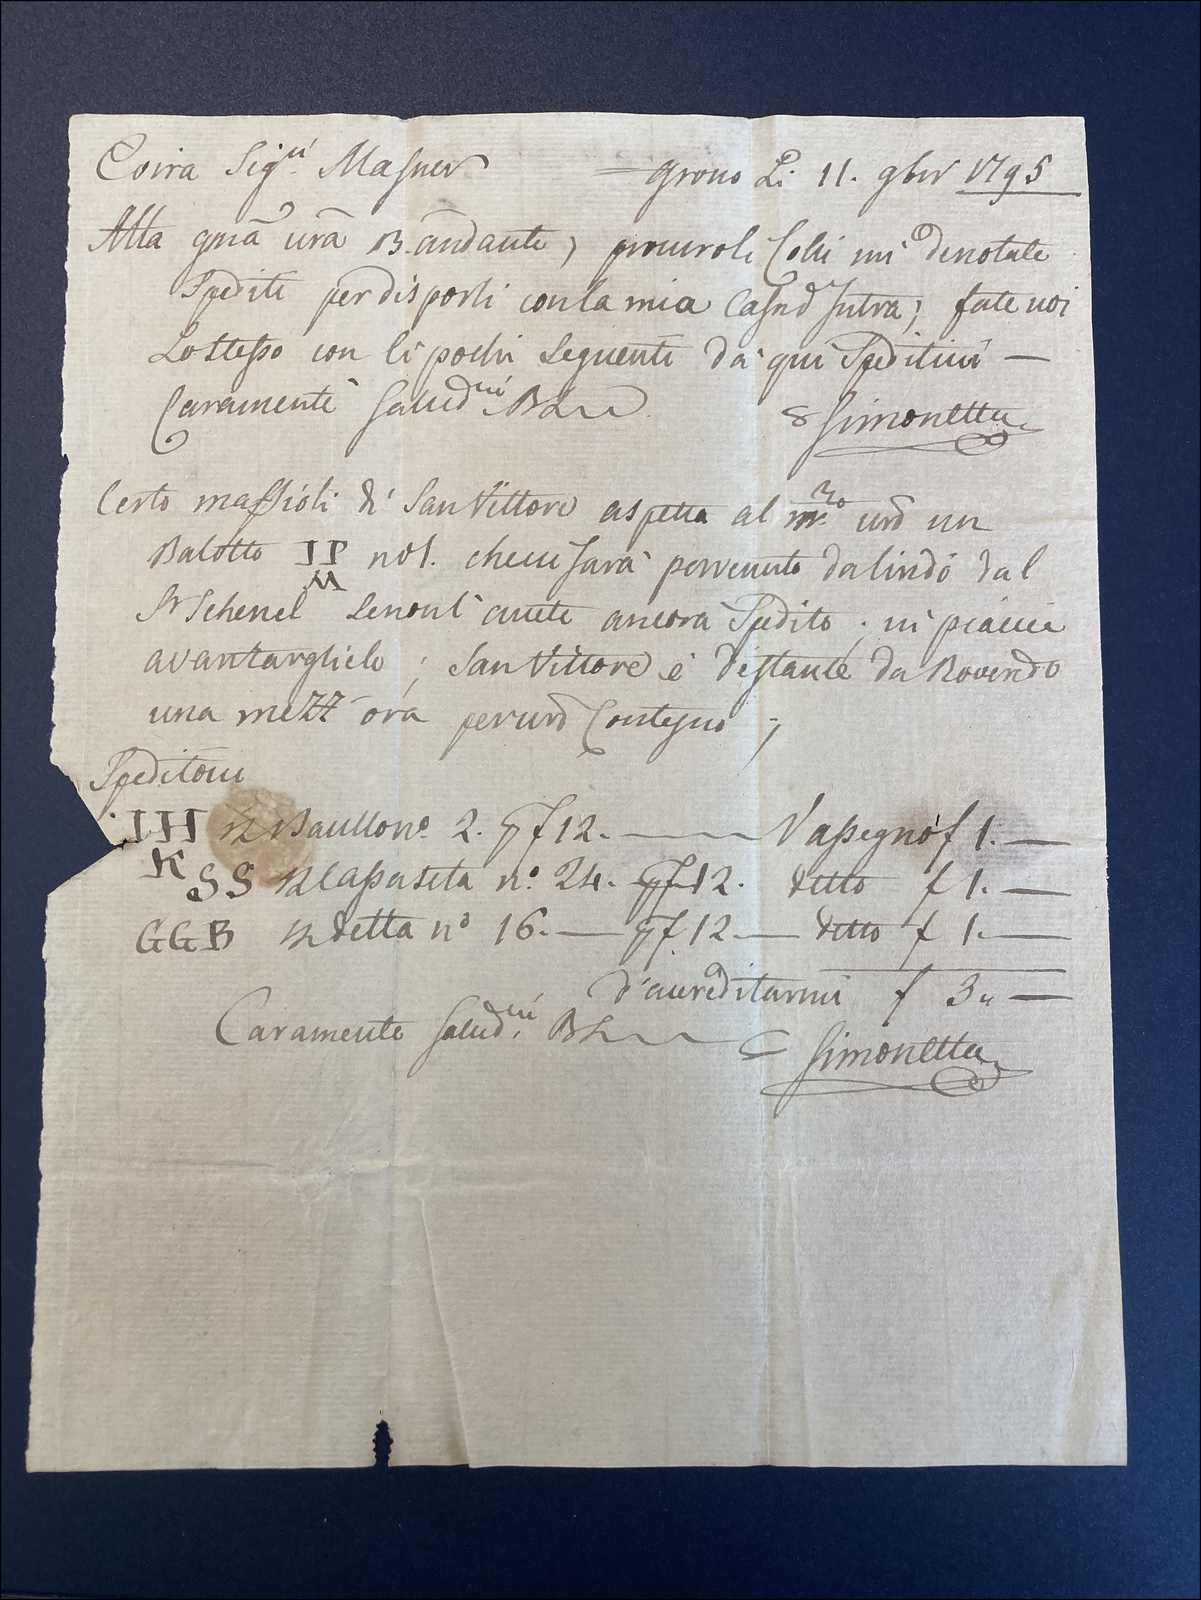 Coira Sig.ri Masner Grono Li 11. 9br 1795
Alla gma vra 13. andante, Colli mi denotate
Spediti per disporli con la mia Casa d'Intra; fate voi
Lo stesso con li pochi seguenti da qui speditivi —
Caramente Salud.vi BL E Simonetta
Certo massioli di San Vittore aspetta al vro un
Balotto II no1. che vi sarà pervenuto da lindò dal
M
Sr Schenel se non l'avete ancora Spedito; vi piacia
avantarglielo; San Vittore è distante da Roveredo
una mezz'ora per vro Contegno;
Speditovi
IH 1 Baullo no. 2. f 12. — V'assegno f 1. —
K
SS 1 Cassetta no. 24. f 12. detto f 1. —
GGB 1 detta no 16. — f 12. — detto f 1. —
d'acreditarmi f 3 „ —
Caramente Salud.vi BL E Simonetta